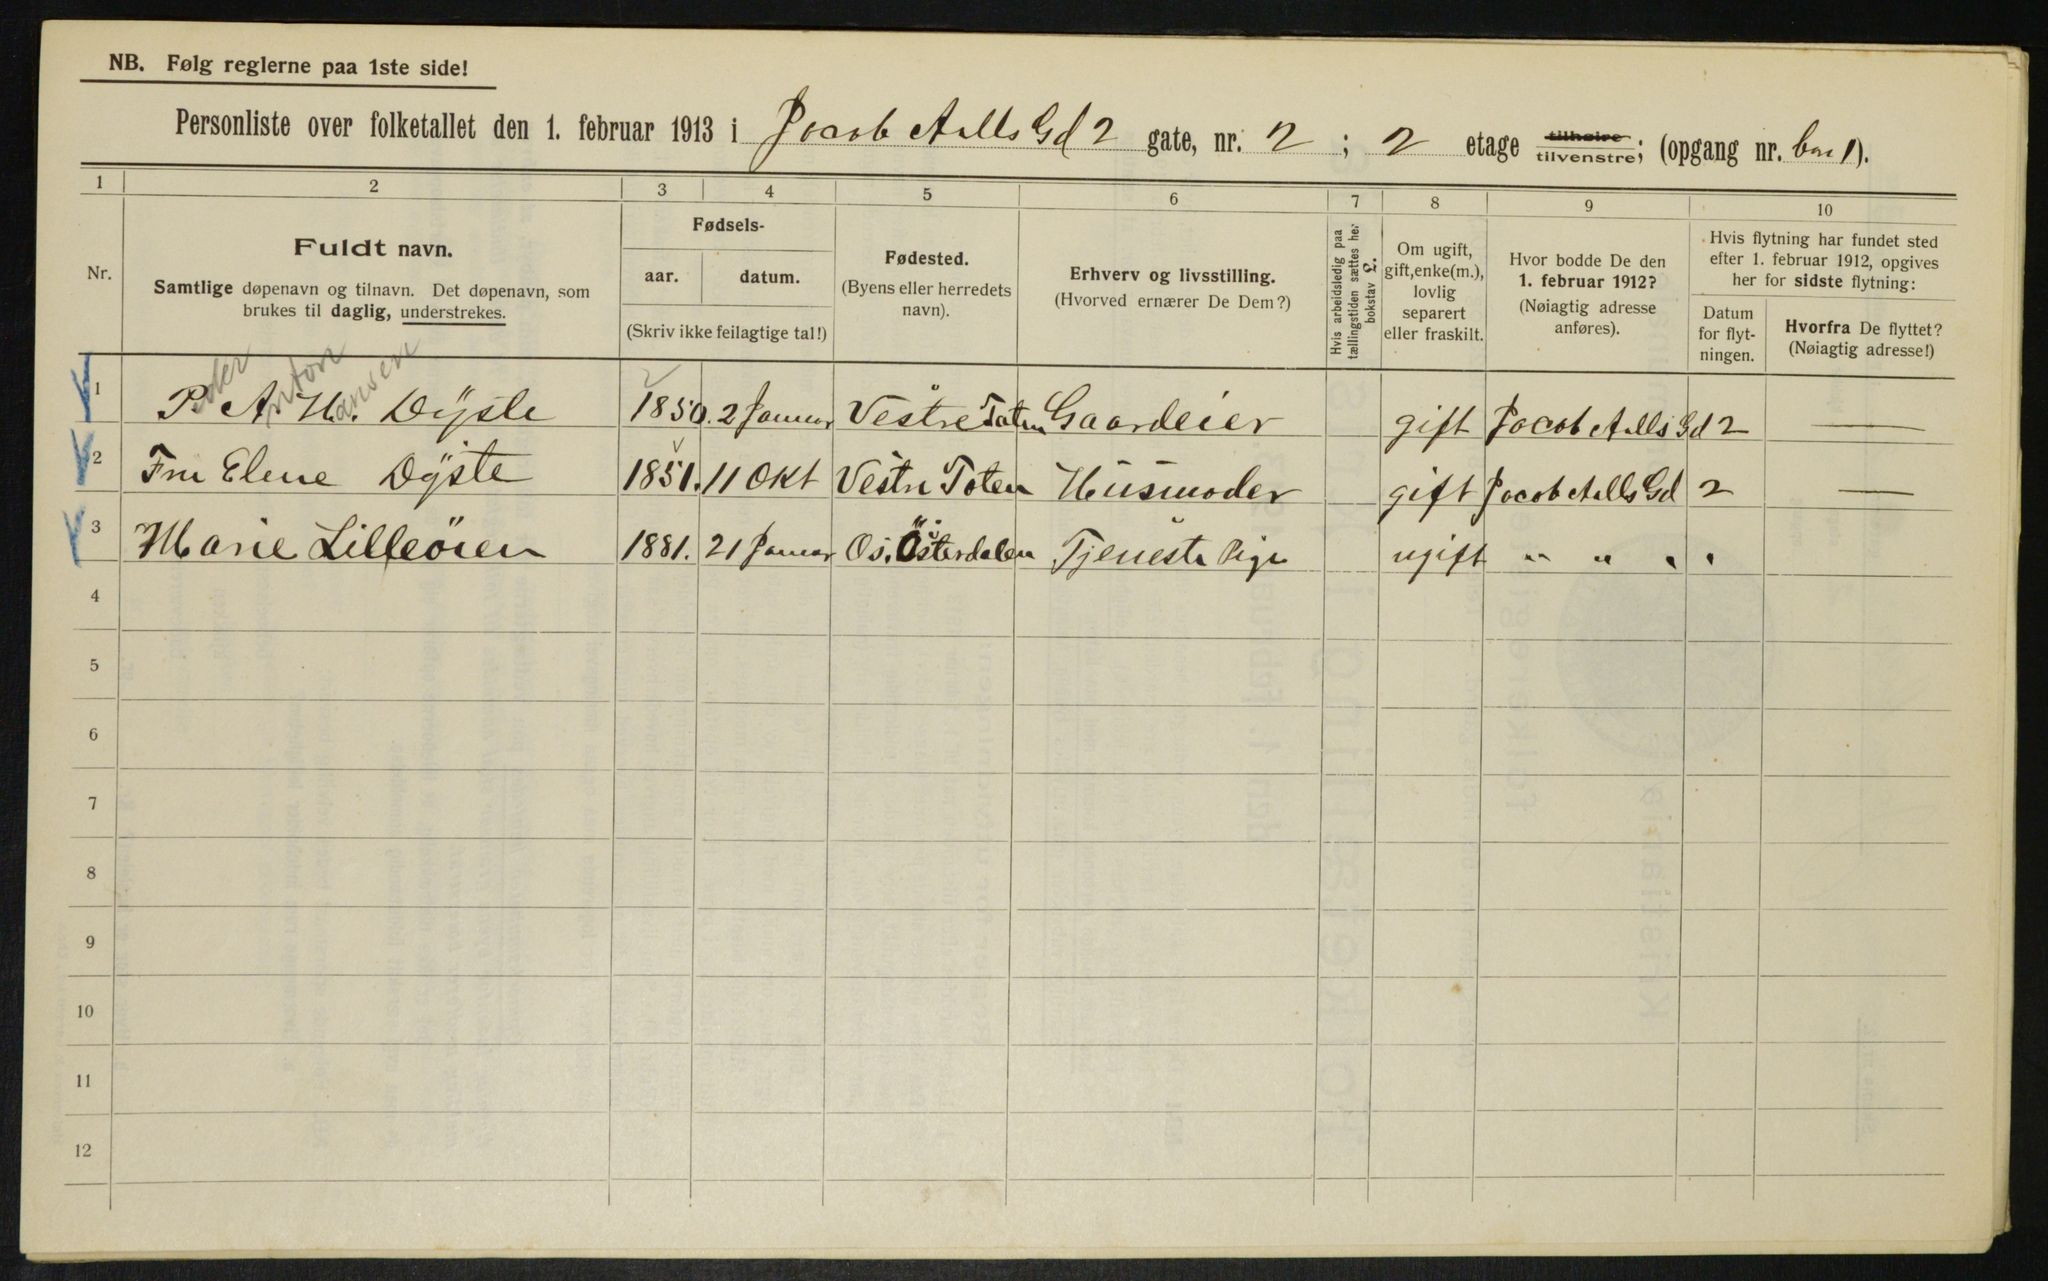 NB. Følg reglerne paa 1ste side!
Personliste over folketallet den 1. februar 1913 i Jacob Aalls Gd 2 gate, nr. 2 ; 2 etage tilhøire tilvenstre; (opgang nr. 1).
1 2 3 4 5 6 7 8 9 10
Nr.
Fuldt navn.
Samtlige døpenavn og tilnavn. Det døpenavn, som
brukes til daglig, understrekes.
Fødsels-
aar. datum.
(Skriv ikke feilagtige tal!)
Fødested.
(Byens eller herredets
navn).
Erhverv og livsstilling.
(Hvorved ernærer De Dem?)
Hvis arbeidsledig paa
tællingstiden sættes her
bokstav £.
Om ugift,
gift, enke(m.),
lovlig
separert
eller fraskilt.
Hvor bodde De den
1. februar 1912?
(Nøiagtig adresse
anføres).
Hvis flytning har fundet sted
efter 1. februar 1912, opgives
her for sidste flytning:
Datum
for flyt-
ningen.
Hvorfra De flyttet?
(Nøiagtig adresse!)
eder nton ansen
1 P. A. H. Dÿste 1850. 2 Januar Vestre Toten Gaardeier gift Jacob Aalls Gd 2 —
2 Fru Elene Dÿste 1851. 11 Okt Vestre Toten Husmoder gift Jacob Aalls Gd 2 —
3 Marie Lilleöien 1881. 21 Januar Os. Österdalen Tjeneste Pige ugift " " " "
4
5
6
7
8
9
10
11
12